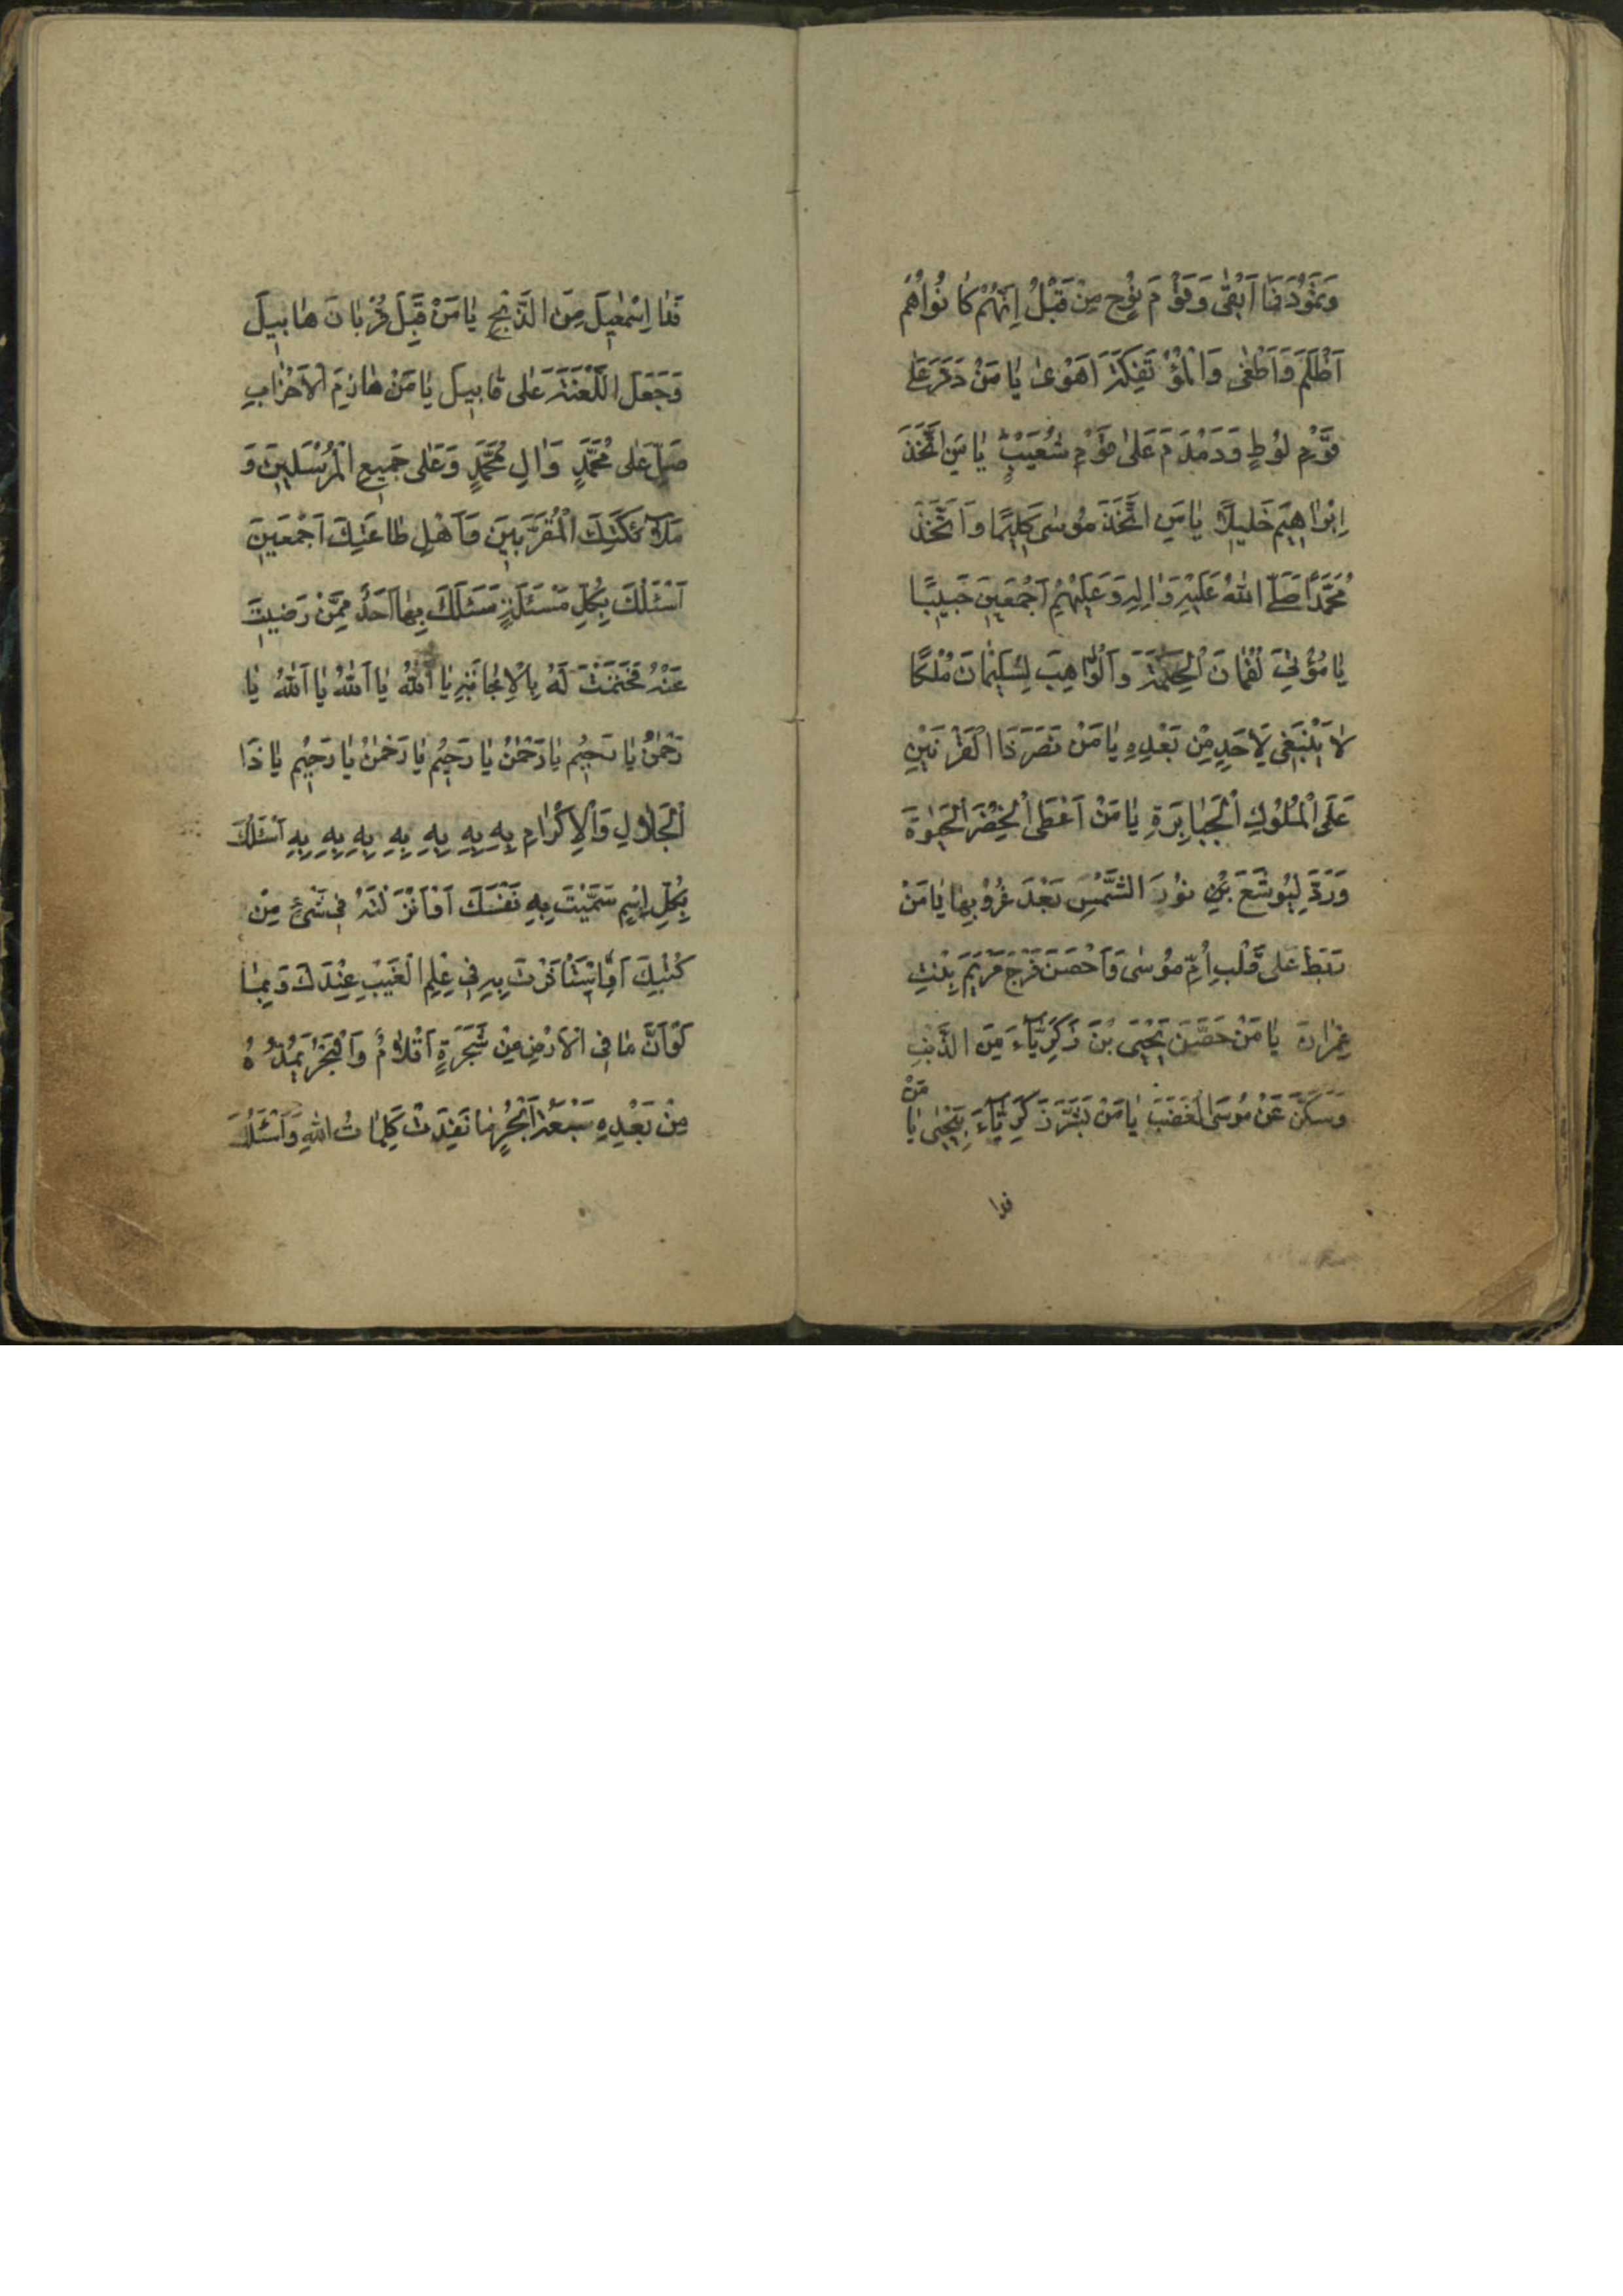 وَثَمُوْدَ فَمَا اَبْقٰى وَقَوْمَ نُوحٍ مِنْ قَبْلُ اِنَّهُمْ كَانُوْا هُمْ
اَظْلَمَ وَاَطْغٰى وَالْمُؤْتَفِكَةَ اَهْوٰى يٰا مَنْ دَمَّرَ عَلٰى
قَوْمِ لُوطٍ وَدَمْدَمَ عَلىٰ قَوْمِ شُعَيْبٍ يٰا مَنِ اتَّخَذَ
اِبْرٰاهِيمَ خَلِيلًا يٰا مَنِ اتَّخَذَ مُوسٰى كَلِيمًا وَاتَّخَذَ
مُحَمَّدًا صَلَّى اللّٰهُ عَلَيْهِ وَاٰلِهِ وَعَلَيْهِمْ اَجْمَعِينَ حَبِيبًا
يٰا مُؤْتِيَ لُقْمٰانَ الْحِكْمَةَ وَالْوٰاهِبَ لِسُلَيْمٰانَ مُلْكًا
لاٰ يَنْبَغِى لِاَحَدٍ مِنْ بَعْدِهِ يٰا مَنْ نَصَرَ ذَا الْقَرْنَيْنِ
عَلَى الْمُلُوكِ الْجَبٰابِرَةِ يٰا مَنْ اَعْطَى الْخِضْرَ الْحَيٰوةَ
وَرَدَّ لِيُوشَعَ بْنِ نُوْنَ الشَّمْسَ بَعْدَ غُرُوْبِهٰا يٰا مَنْ
رَبَطَ عَلٰى قَلْبِ اُمِّ مُوْسٰى وَاَحْصَنَ فَرْجَ مَرْيَمَ بِنْتِ
عِمْرٰانَ يٰا مَنْ حَصَّنَ يَحْيَى بْنَ زَكَرِيّٰآءَ مِنَ الذَّنْبِ
وَسَكَّنَ عَنْ مُوسَى الْغَضَبَ يٰا مَنْ بَشَّرَ زَكَرِيّٰآءَ بِيَحْيٰى يٰا مَنْ
فدا
فَدٰا اِسْمٰعِيلَ مِنَ الذَّبْحِ يٰا مَنْ قَبِلَ قُرْبٰانَ هٰابِيلَ
وَجَعَلَ اللَّعْنَةَ عَلٰى قٰابِيلَ يٰا مَنْ هٰازِمَ الْاَحْزٰابِ
صَلِّ عَلٰى مُحَمَّدٍ وَاٰلِ مُحَمَّدٍ وَعَلٰى جَمِيعِ الْمُرْسَلِينَ وَ
مَلاٰئِكَتِكَ الْمُقَرَّبِينَ وَاَهْلِ طٰاعَتِكَ اَجْمَعِينَ
اَسْئَلُكَ بِكُلِّ مَسْئَلَةٍ سَئَلَكَ بِهٰا اَحَدٌ مِمَّنْ رَضِيتَ
عَنْهُ فَحَتَمْتَ لَهُ بِالْاِجٰابَةِ يٰا اَللّٰهُ يٰا اَللّٰهُ يٰا اَللّٰهُ يٰا
رَحْمٰنُ يٰا رَحِيْمُ يٰا رَحْمٰنُ يٰا رَحِيْمُ يٰا رَحْمٰنُ يٰا رَحِيْمُ يٰا ذَا
الْجَلاٰلِ وَالْاِكْرٰامِ بِهِ بِهِ بِهِ بِهِ بِهِ بِهِ بِهِ بِهِ اَسْئَلُكَ
بِكُلِّ اِسْمٍ سَمَّيْتَ بِهِ نَفْسَكَ اَوْ اَنْزَلْتَهُ فِى شَىْءٍ مِنْ
كُتُبِكَ اَوِ اسْتَأْثَرْتَ بِهِ فِى عِلْمِ الْغَيْبِ عِنْدَكَ وَبِمٰا
لَوْ اَنَّ مٰا فِى الْاَرْضِ مِنْ شَجَرَةٍ اَقْلاٰمٌ وَالْبَحْرُ يَمُدُّهُ
مِنْ بَعْدِهِ سَبْعَةُ اَبْحُرٍ مٰا نَفِدَتْ كَلِمٰاتُ اللّٰهِ وَاَسْئَلُكَ